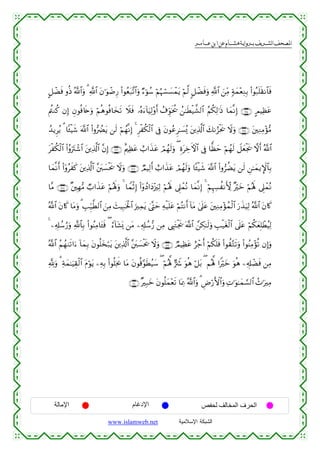 المصحف الشريف برواية هشام عن ابن عامر
فَٱنقَلَبُوا۟ بِنِعْمَةٍ مِّنَ ٱللَّهِ وَفَضْلٍ لَّمْ يَمْسَسْهُمْ سُوٓءٌ وَٱتَّبَعُوا۟ رِضْوَٰنَ ٱللَّهِ ۗ وَٱللَّهُ ذُو فَضْلٍ
عَظِيمٍ ﴿١٧٤﴾ إِنَّمَا ذَٰلِكُمُ ٱلشَّيْطَٰنُ يُخَوِّفُ أَوْلِيَآءَهُۥ فَلَا تَخَافُوهُمْ وَخَافُونِ إِن كُنتُم
مُّؤْمِنِينَ ﴿١٧٥﴾ وَلَا يَحْزُنكَ ٱلَّذِينَ يُسَٰرِعُونَ فِى ٱلْكُفْرِ ۚ إِنَّهُمْ لَن يَضُرُّوا۟ ٱللَّهَ شَيْـًٔا ۗ يُرِيدُ
ٱللَّهُ أَلَّا يَجْعَلَ لَهُمْ حَظًّا فِى ٱلْـَٔاخِرَةِ ۖ وَلَهُمْ عَذَابٌ عَظِيمٌ ﴿١٧٦﴾ إِنَّ ٱلَّذِينَ ٱشْتَرَوُا۟ ٱلْكُفْرَ
بِٱلْإِيمَٰنِ لَن يَضُرُّوا۟ ٱللَّهَ شَيْـًٔا وَلَهُمْ عَذَابٌ أَلِيمٌ ﴿١٧٧﴾ وَلَا يَحْسَبَنَّ ٱلَّذِينَ كَفَرُوٓا۟ أَنَّمَا
نُمْلِى لَهُمْ خَيْرٌ لِّأَنفُسِهِمْ ۚ إِنَّمَا نُمْلِى لَهُمْ لِيَزْدَادُوٓا۟ إِثْمًا ۚ وَلَهُمْ عَذَابٌ مُّهِينٌ ﴿١٧٨﴾ مَّا
كَانَ ٱللَّهُ لِيَذَرَ ٱلْمُؤْمِنِينَ عَلَىٰ مَآ أَنتُمْ عَلَيْهِ حَتَّىٰ يَمِيزَ ٱلْخَبِيثَ مِنَ ٱلطَّيِّبِ ۗ وَمَا كَانَ ٱللَّهُ
لِيُطْلِعَكُمْ عَلَى ٱلْغَيْبِ وَلَٰكِنَّ ٱللَّهَ يَجْتَبِى مِن رُّسُلِهِۦ مَن يَشَآءُ ۖ فَـَٔامِنُوا۟ بِٱللَّهِ وَرُسُلِهِۦ ۚ
وَإِن تُؤْمِنُوا۟ وَتَتَّقُوا۟ فَلَكُمْ أَجْرٌ عَظِيمٌ ﴿١٧٩﴾ وَلَا يَحْسَبَنَّ ٱلَّذِينَ يَبْخَلُونَ بِمَآ ءَاتَىٰهُمُ ٱللَّهُ
مِن فَضْلِهِۦ هُوَ خَيْرًا لَّهُم ۖ بَلْ هُوَ شَرٌّ لَّهُمْ ۖ سَيُطَوَّقُونَ مَا بَخِلُوا۟ بِهِۦ يَوْمَ ٱلْقِيَٰمَةِ ۗ وَلِلَّهِ
مِيرَٰثُ ٱلسَّمَٰوَٰتِ وَٱلْأَرْضِ ۗ وَٱللَّهُ بِمَا تَعْمَلُونَ خَبِيرٌ ﴿١٨٠﴾
الحرف المخالف لحفص الإدغام الإمالة
الشبكة الإسلامية www.islamweb.net